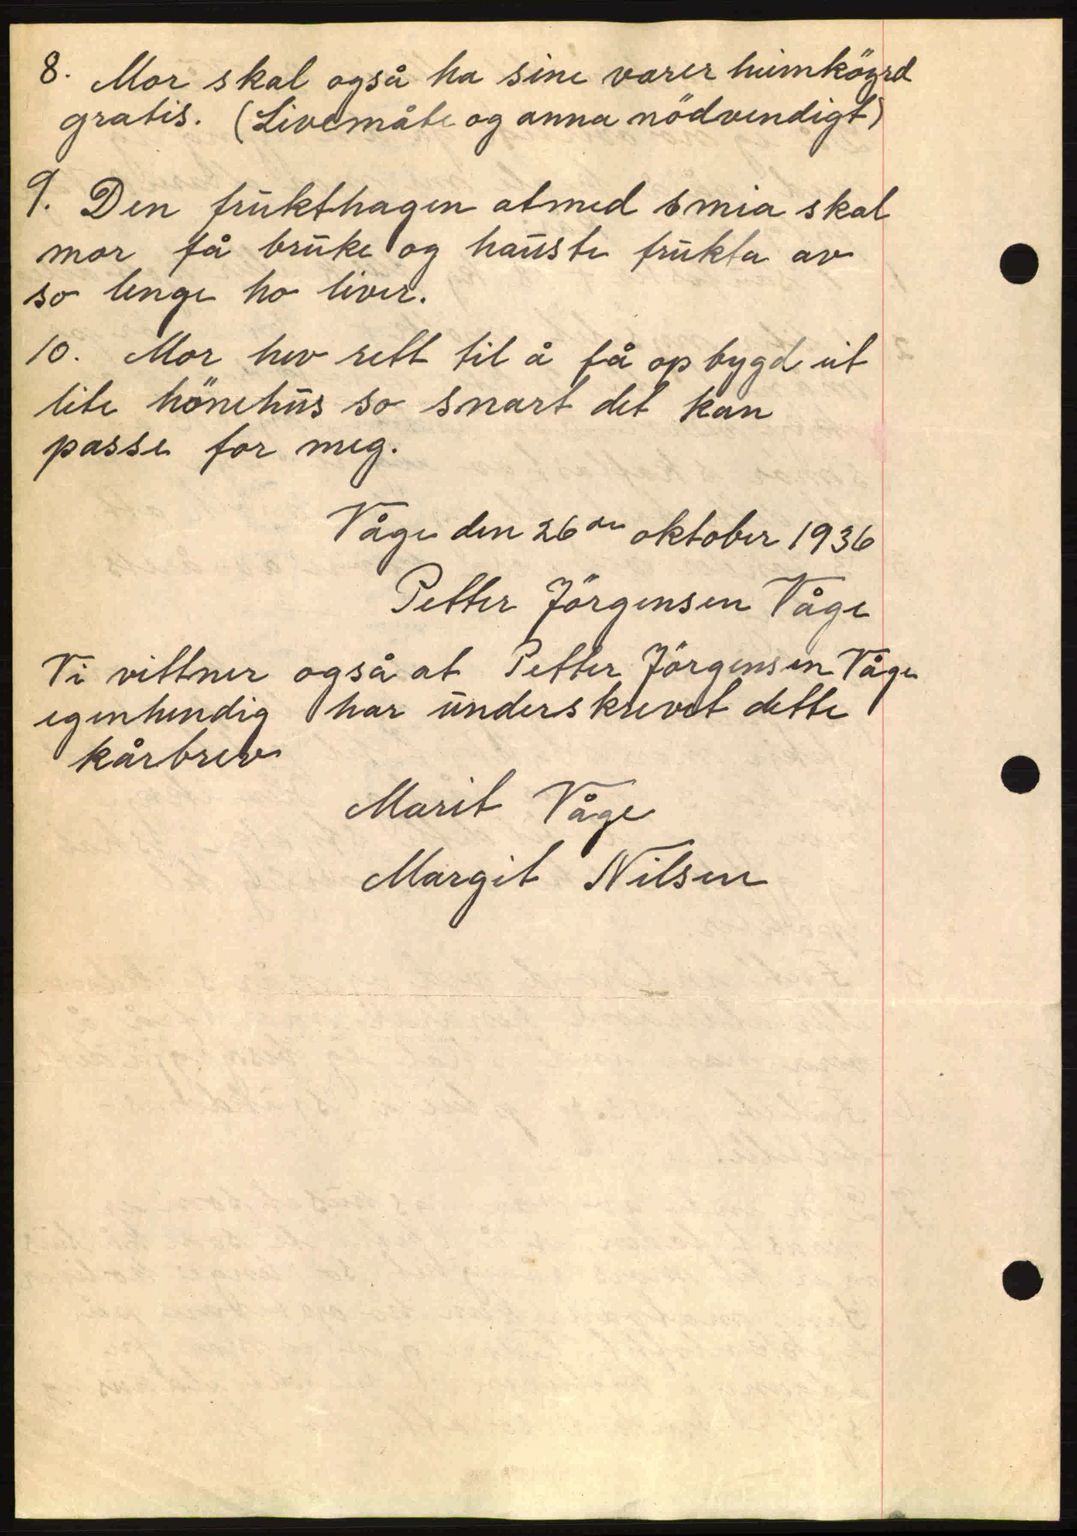 8. Mor skal også ha sine varer heimköyrd
gratis. (Livemåte og anna nödvendigt)
9. Den frukthagen atmed smia skal
mor få bruke og hauste frukta av
so lenge ho liver.
10. Mor hev rett til å få opbygd eit
lite hönehus so snart det kan
passe for meg.
Våge den 26de oktober 1936
Petter Jörgensen Våge
Vi vittner også at Petter Jörgensen Våge
egenhendig har underskrevet dette
kårbrev
Marit Våge
Margit Nilsen